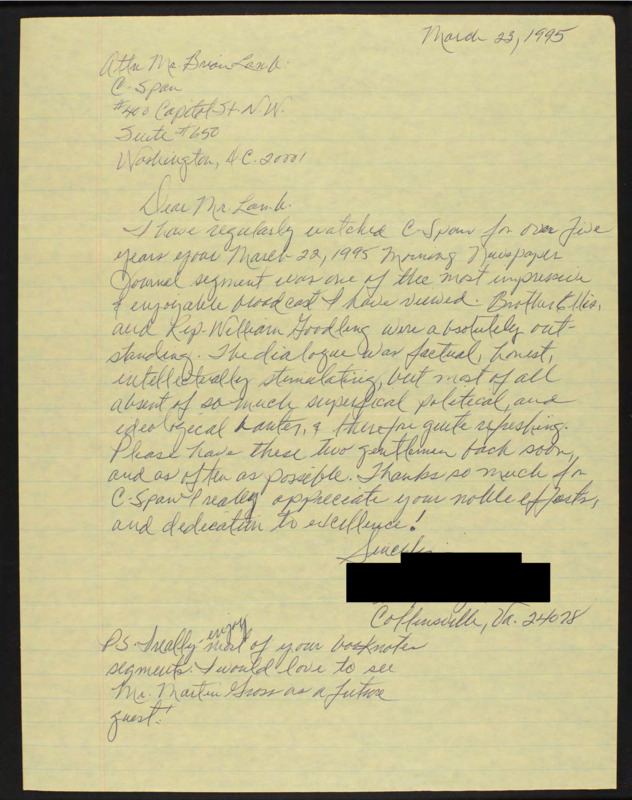 March 23, 1995
Attn Mr Brian Lamb.
C-Span
#400 Capitol St. N.W.
Suite #650
Washington, D.C. 20001
Dear Mr. Lamb.
I have regularly watched C-Span for over five
years your March 22, 1995 Morning Newspaper
Journal segment was one of thee most impressive
& enjoyable broadcast I have viewed. Brother Ellis,
and Rep. William Goodling were absolutely out-
standing. The dialogue was factual, honest,
intellectually stimulating, but most of all
absent of so much superfical political, and
ideological banter, & therefore quite refreshing.
Please have these two gentlemen back soon,
and as often as possible. Thanks so much for
C-Span I really appreciate your noble efforts,
and dedication to excellence!
Collinsville, Va. 24078
P.S. I really enjoy most of your booknotes
segments. I would love to see
Mr. Martin Gross as a future
guest!